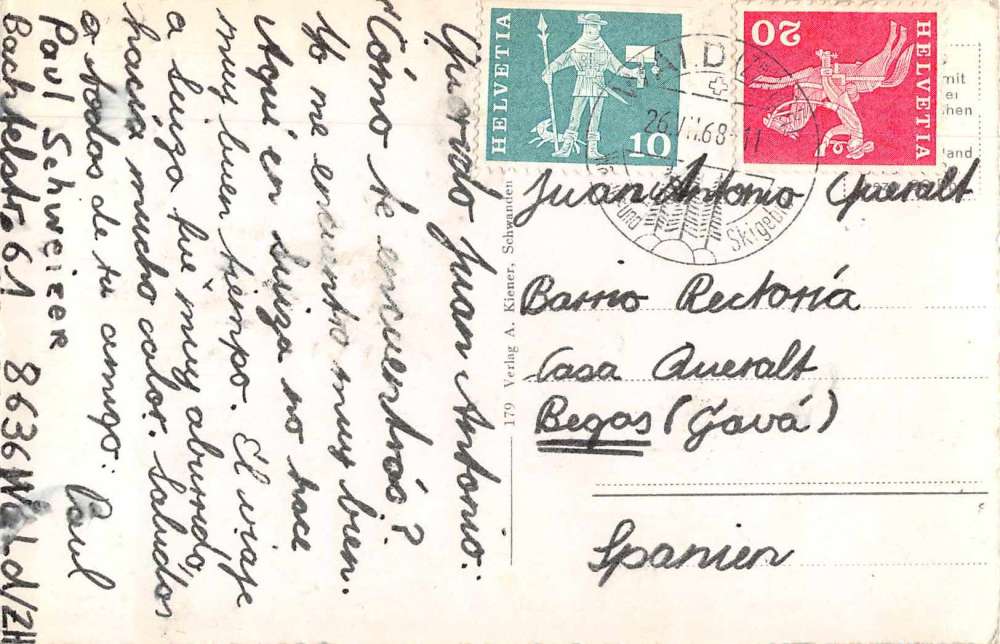 Querido Juan Antonio:
¿Cómo te encuentrás?
Yo me encuentro muy bien.
Aquí en Suiza no hace
muy buen tiempo. El viaje
a Suiza fué muy aburrido,
hacía mucho calor. Saludos
a todos de tu amigo: Paul
Paul Schweizer
Bachtelstr. 61 8636 Wald/ZH
179 Verlag A. Kiener, Schwanden
HELVETIA
10
HELVETIA
20
WALD
26.VII.68-11
und
Skigebi
mit
ei
chen
land
Juan Antonio Queralt
Barrio Rectoría
Casa Queralt
Begas (Gavá)
Spanien